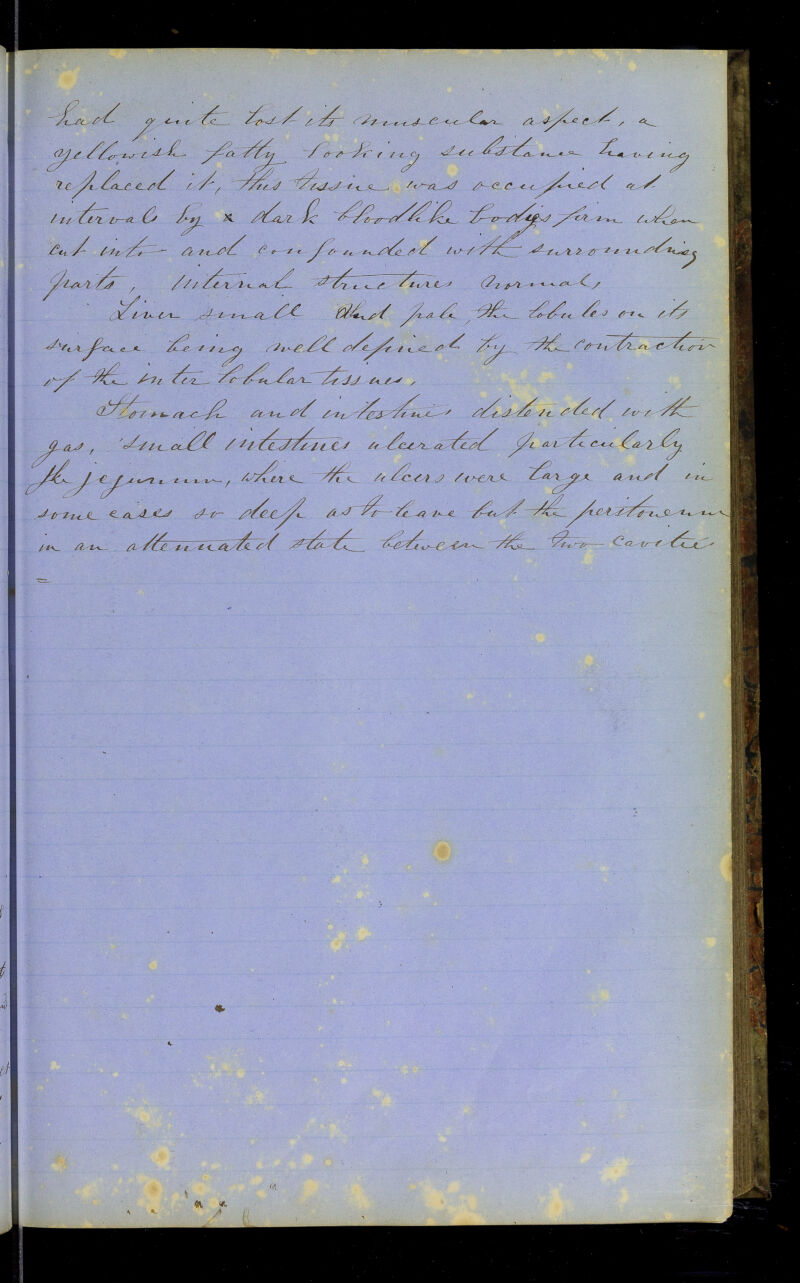 had quite lost its muscular aspect, a
yellowish fatty looking substance having
replaced it, this tissue was occupied at
intervals by x dark bloodlike bodies firm when
cut into and confounded with surrounding
parts, internal structures normal,
Liver small and pale, the lobules on its
surface being well defined by the contraction
of the inter lobular tissues,
Stomach and intestines distended with
gas, small intestines ulcerated particularly
the jejunum, where the ulcers were large and in
some cases so deep as to leave but the peritoneum
in an attenuated state between the two cavities
=